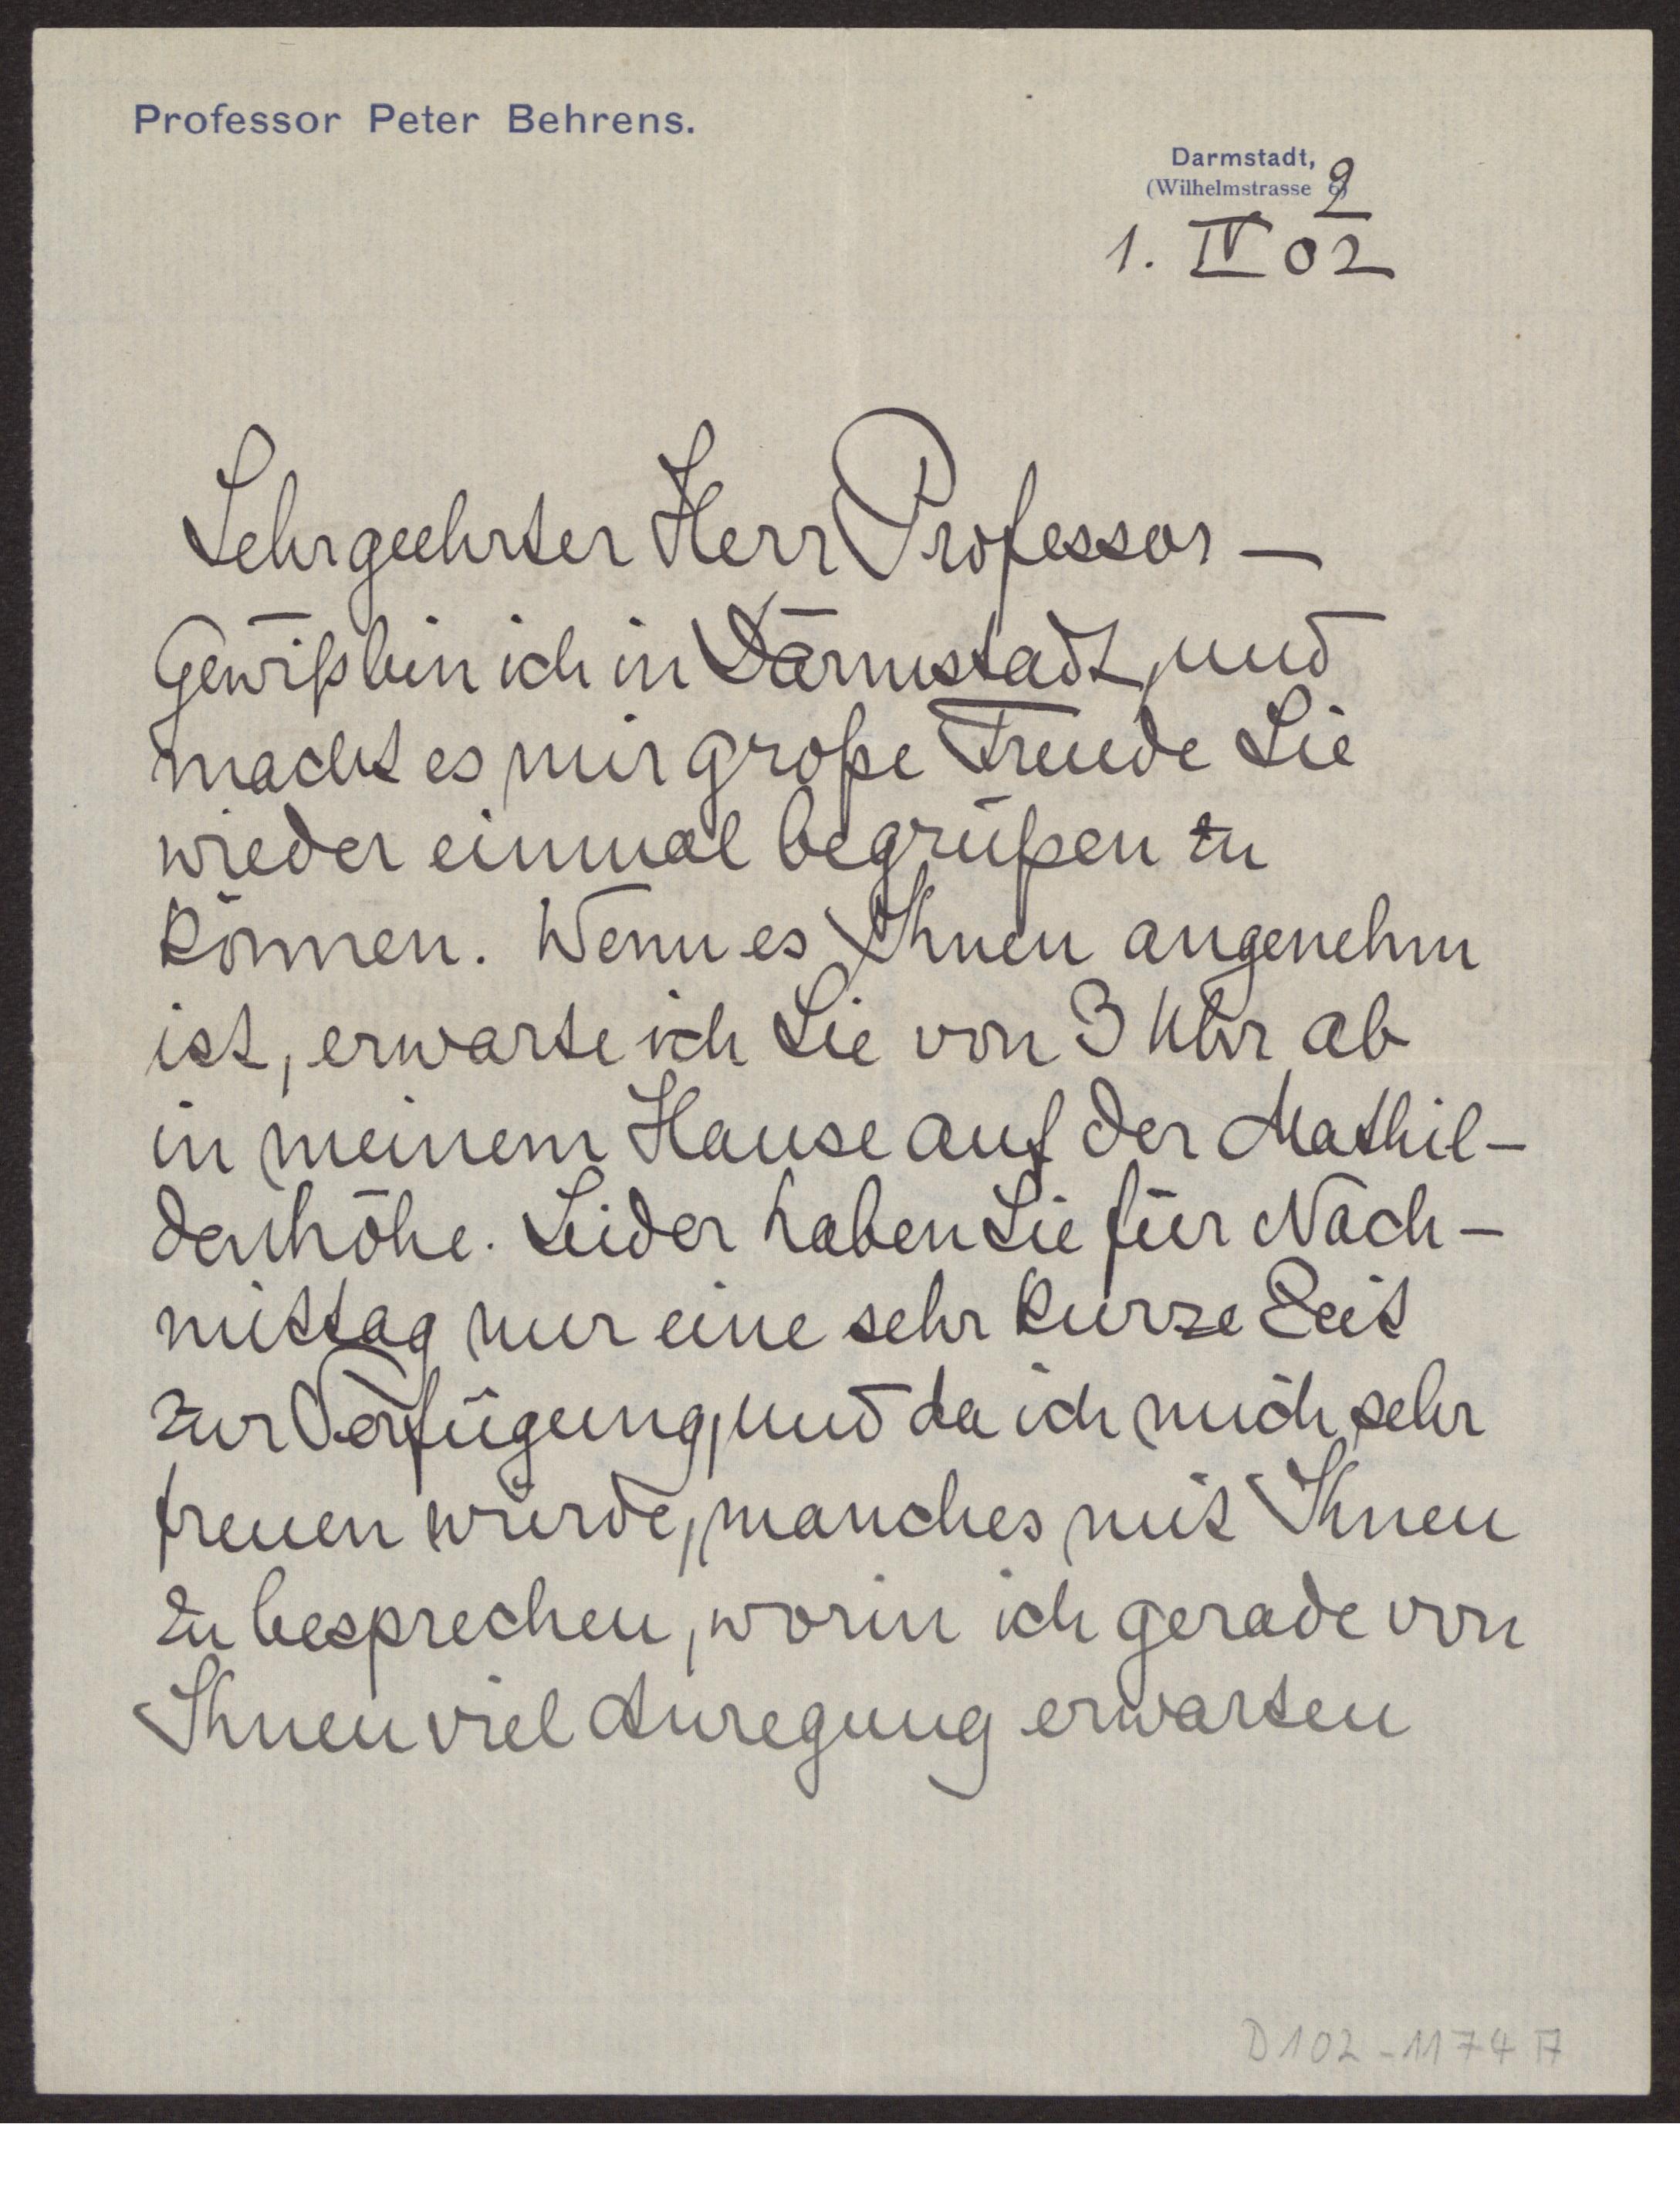 Professor Peter Behrens.
Darmstadt,
(Wilhelmstrasse 9
1. IV 02
Sehrgeehrter Herr Professor —
Gewiß bin ich in Darmstadt, und
macht es mir große Freude Sie
wieder einmal begrüßen zu
können. Wenn es Ihnen angenehm
ist, erwarte ich Sie von 3 Uhr ab
in meinem Hause auf der Mathil-
denhöhe. Leider haben Sie für Nach-
mittag nur eine sehr kurze Zeit
zur Verfügung, und da ich mich sehr
freuen würde, manches mit Ihnen
zu besprechen, worin ich gerade von
Ihnen viel Anregung erwarten
D102-1174 A